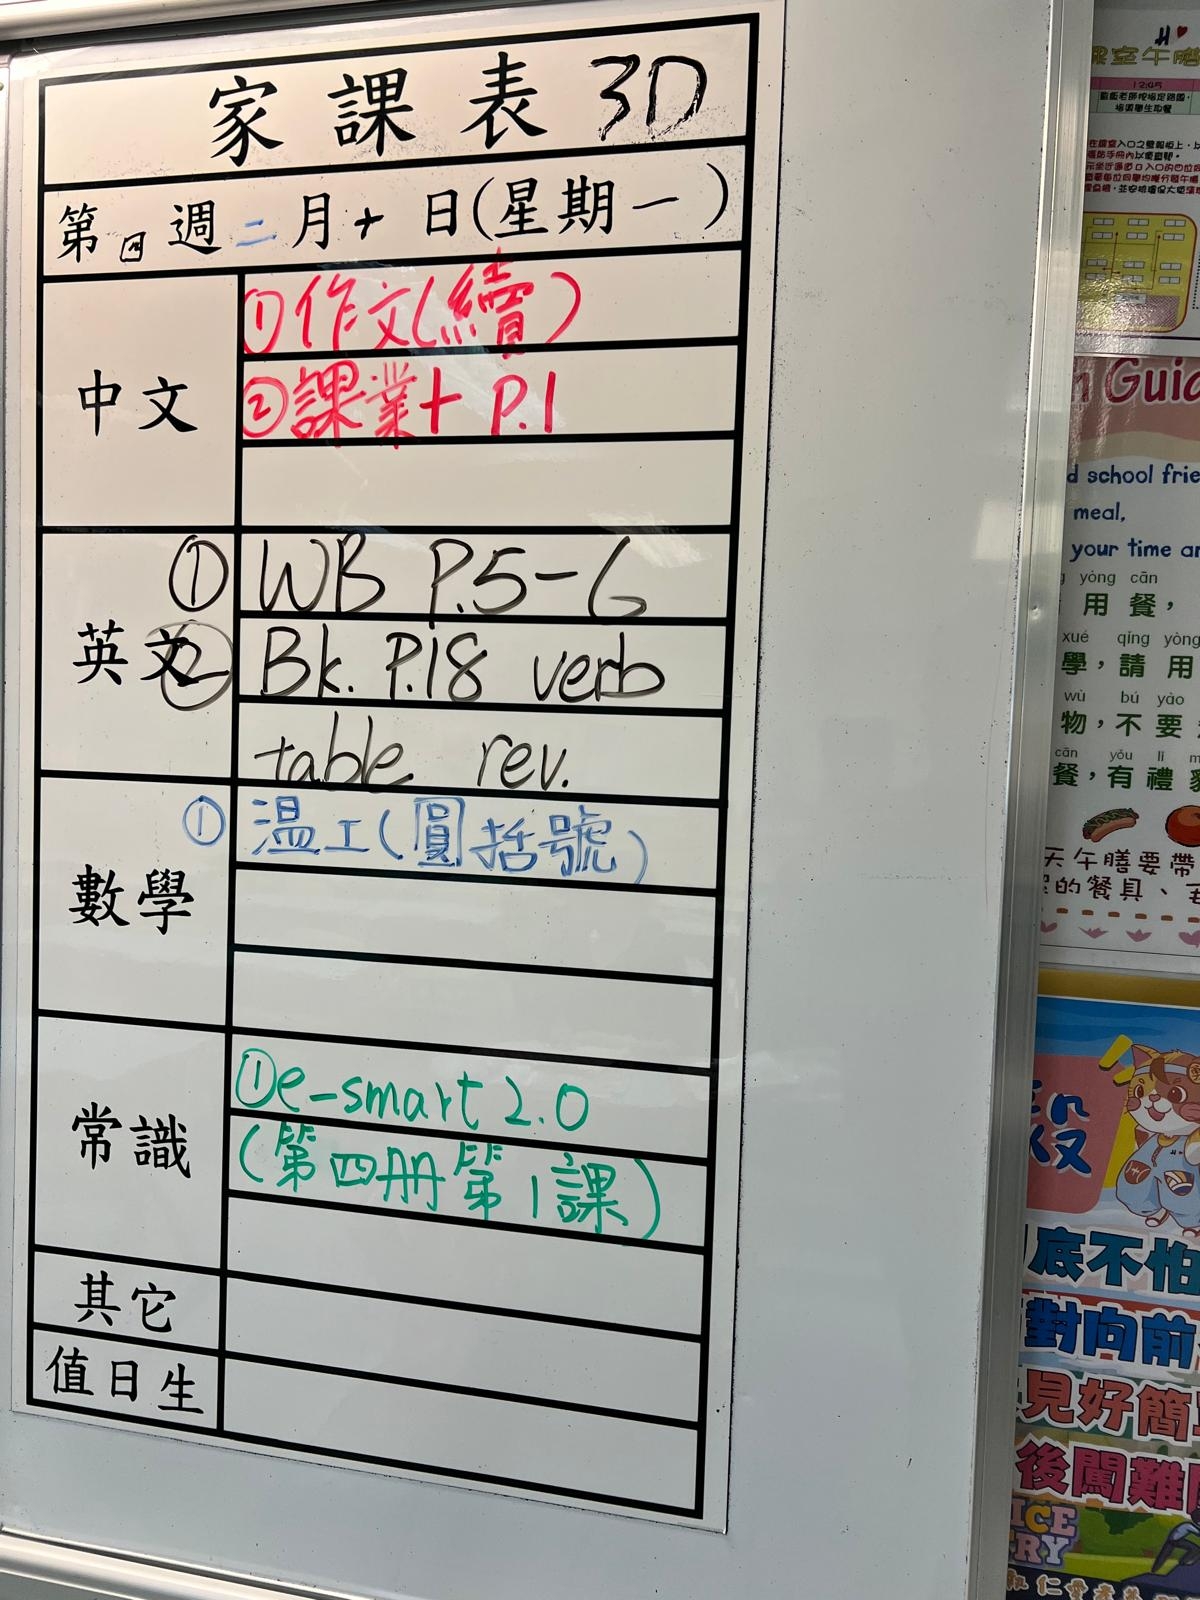 家課表 3D
第四週二月十日(星期一)
中文
①作文(續)
②課業十 P.1
英文
① WB P.5-6
② Bk. P.18 verb
table rev.
數學
① 温工(圓括號)
常識
①e-smart 2.0
(第四冊第1課)
其它
值日生
H
課室午膳
12:05
n Guid
d school frie
meal,
your time an
yòng cān
用餐，
xué qǐng yòng
學，請用
wù bú yào
物，不要
cān yǒu lǐ m
餐，有禮貌
天午膳要帶
的餐具、
段
底不怕
對向前
見好簡
後闖難